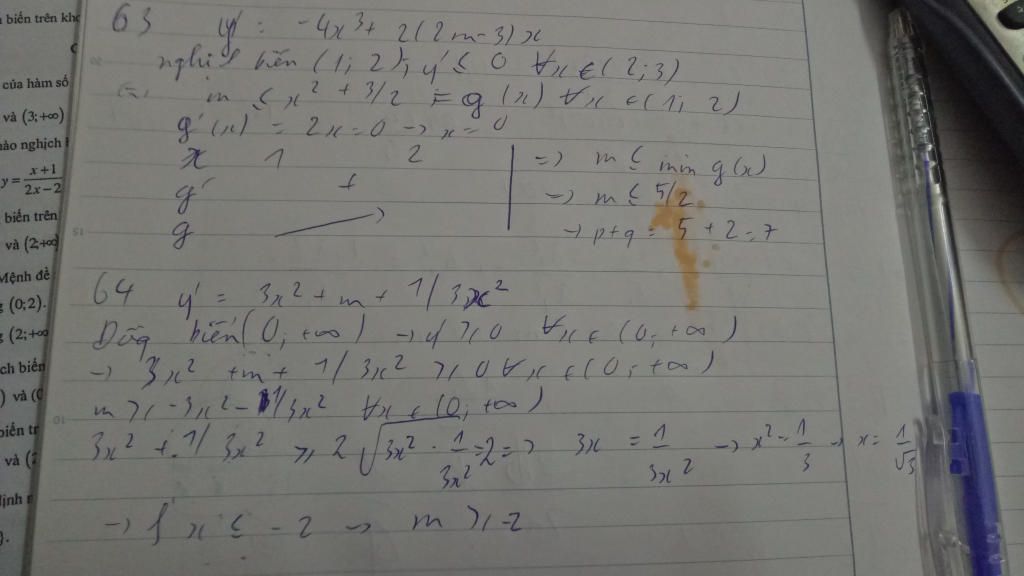 biến trên kho
của hàm số
và (3;+∞)
nào nghịch
y = x+1 / 2x−2
biến trên
và (2;+∞
Mệnh đề
(0;2).
(2;+∞
ch biến
) và (0
biến tr
và (
định
63 y' = -4x³ + 2(2m-3)x
nghịch biến (1; 2), y' ≤ 0 ∀x ∈ (2; 3)
(=) m ≤ x² + 3/2 = g(x) ∀x ∈ (1; 2)
g'(x) = 2x = 0 → x = 0
x 1 2 =) m ≤ min g(x)
g' + → m ≤ 5/2
g → p+q = 5 + 2 = 7
64 y' = 3x² + m + 1/3x²
Đồng biến (0; +∞) → y' ≥ 0 ∀x ∈ (0; +∞)
→ 3x² + m + 1/3x² ≥ 0 ∀x ∈ (0; +∞)
m ≥ -3x² - 1/3x² ∀x ∈ (0; +∞)
3x² + 1/3x² ≥ 2√(3x² · 1/3x²) = 2 => 3x = 1/3x² → x² = 1/3 → x = 1/√3
→ f x ≤ -2 → m ≥ -2